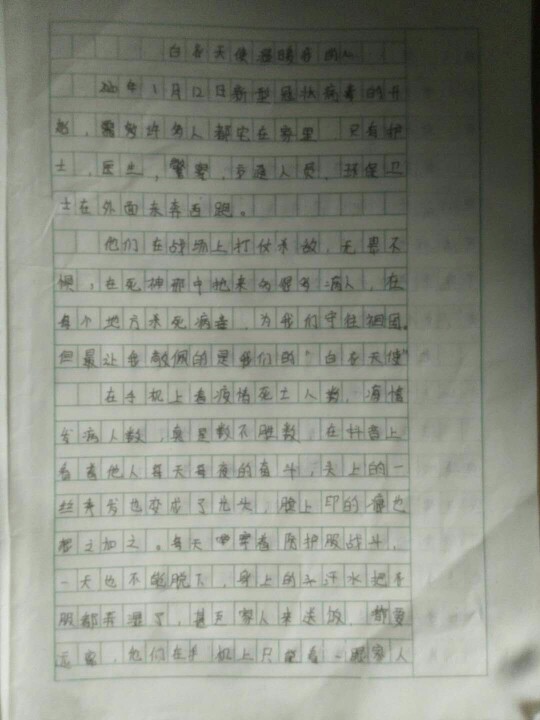 白衣天使
年1月12日新型冠状病毒的开
始，许多人都宅在家里，只有护
士，医生，警察，交通人员，环保卫
士在外面东奔西跑。
他们在战场上打仗杀敌，无畏不
惧，在死神那中抢来病人，在
每个地方杀死病毒，为我们守住祖国，
但最让我敬佩的是我们的“白衣天使”
在手机上看疫情死亡人数，疫情
发病人数，真是数不胜数，在抖音上
看着他人每天每夜的奋斗，头上的一
丝秀发也变成了光头，脸上印的
加之。每天穿着防护服战斗，
一天也不能脱下，身上的汗水把衣
服都弄湿了，甚至家人来送饭，都要
远离，他们在手机上只能看一眼家人